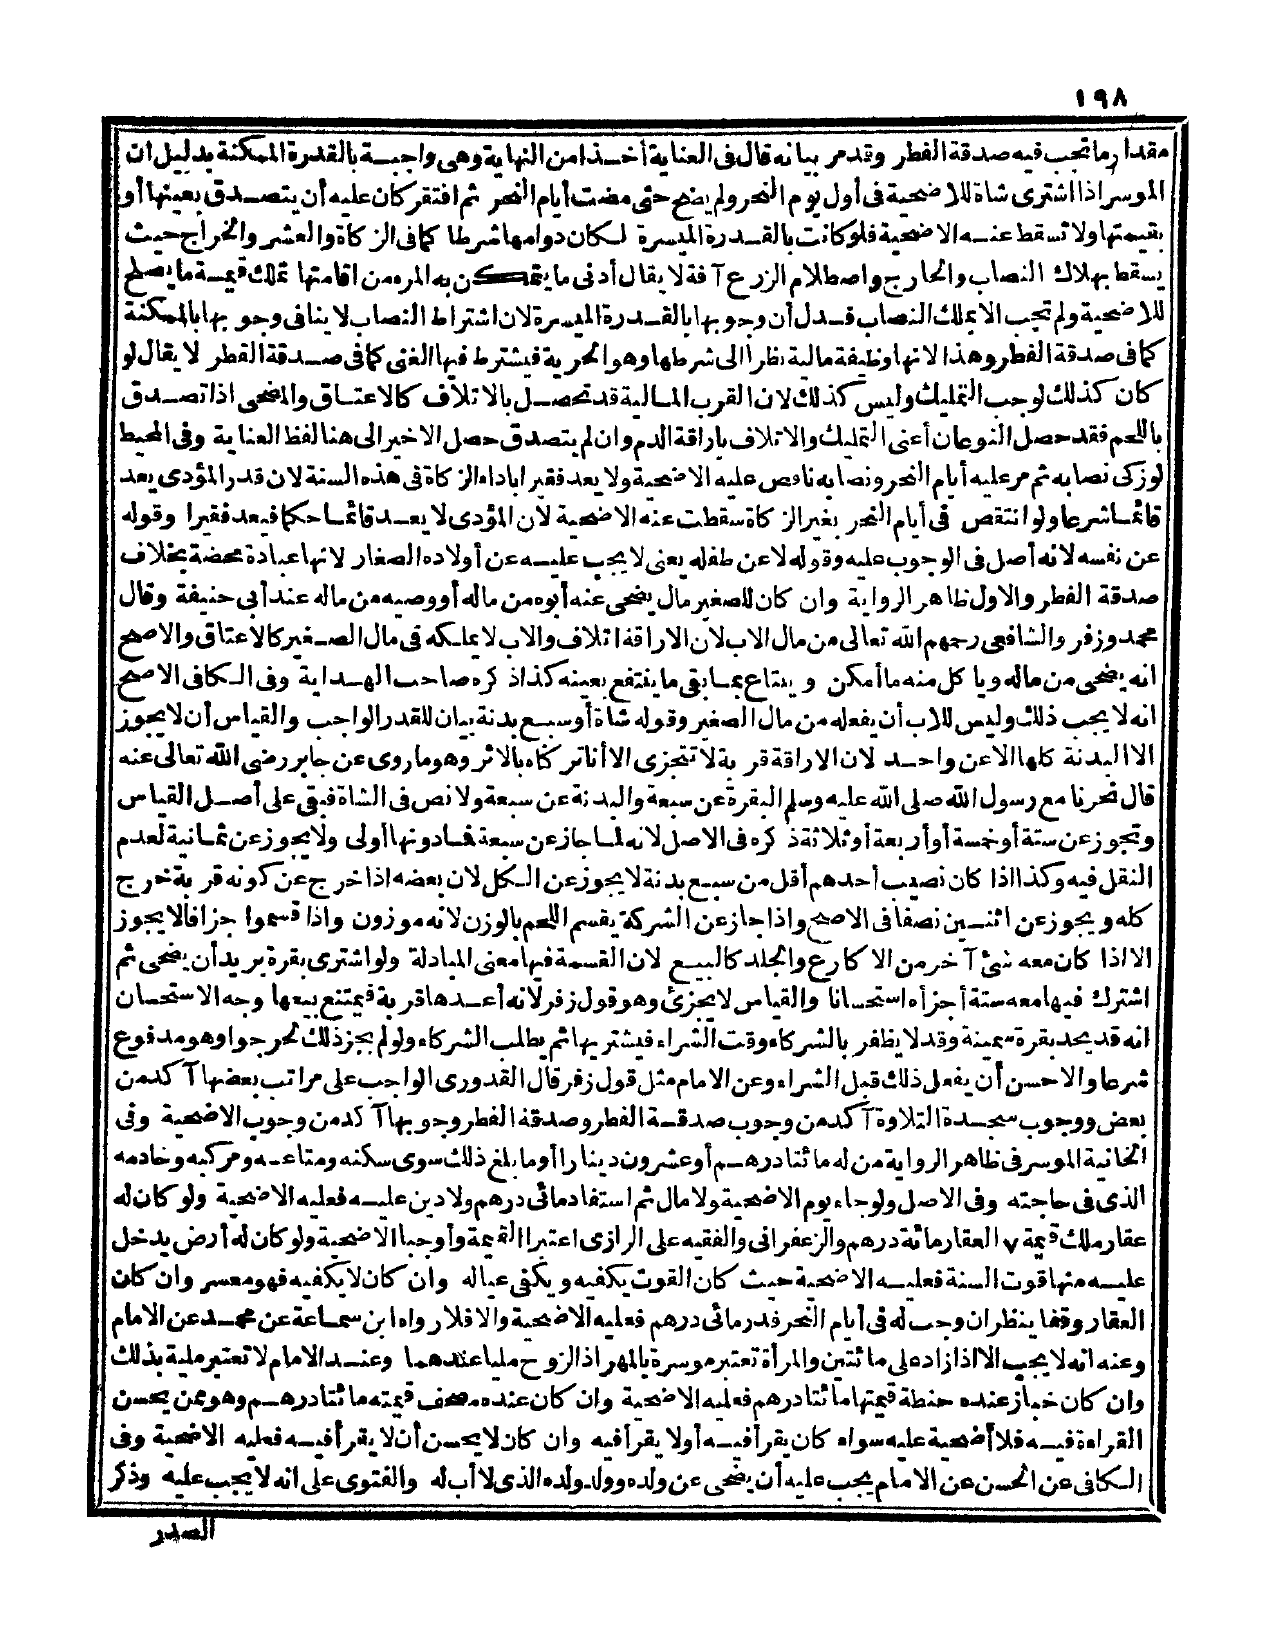 ١٩٨
مقدار ما تجب فيه صدقة الفطر وقد مر بيانه قال فى العناية أخذا من النهاية وهى واجبة بالقدرة الممكنة بدليل ان
الموسر اذا اشترى شاة للاضحية فى أول يوم النحر ولم يضح حتى مضت أيام النحر ثم افتقر كان عليه أن يتصدق بعينها أو
بقيمتها ولا تسقط عنه الاضحية فلو كانت بالقدرة الميسرة لكان دوامها شرطا كما فى الزكاة والعشر والخراج حيث
يسقط بهلاك النصاب والخارج واصطلام الزرع آفة لا يقال أدنى ما يتمكن به المرء من اقامتها تملك قيمة ما يصلح
للاضحية ولم تجب الا بملك النصاب فدل أن وجوبها بالقدرة الميسرة لان اشتراط النصاب لا ينافى وجوبها بالممكنة
كما فى صدقة الفطر وهذا لانها وظيفة مالية نظرا الى شرطها وهو الحرية فيشترط فيها الغنى كما فى صدقة الفطر لا يقال لو
كان كذلك لوجب التمليك وليس كذلك لان القرب المالية قد تحصل بالاتلاف كالاعتاق والمضحى اذا تصدق
باللحم فقد حصل النوعان أعنى التمليك والاتلاف باراقة الدم وان لم يتصدق حصل الاخير الى هنا لفظ العناية وفى المحيط
لو زكى نصابه ثم مر عليه أيام النحر ونصابه ناقص عليه الاضحية ولا يعد فقيرا باداء الزكاة فى هذه السنة لان قدر المؤدى يعد
قائما شرعا ولو انتقص فى أيام النحر بغير الزكاة سقطت عنه الاضحية لان المؤدى لا يعد قائما حكما فيعد فقيرا وقوله
عن نفسه لانه أصل فى الوجوب عليه وقوله لا عن طفله يعنى لا يجب عليه عن أولاده الصغار لانها عبادة محضة بخلاف
صدقة الفطر والاول ظاهر الرواية وان كان للصغير مال يضحى عنه أبوه من ماله أو وصيه من ماله عند أبى حنيفة وقال
محمد وزفر والشافعى رحمهم الله تعالى من مال الاب لان الاراقة اتلاف والاب لا يملكه فى مال الصغير كالاعتاق والاصح
انه يضحى من ماله ويأكل منه ما أمكن ويبتاع بما بقى ما ينتفع بعينه كذا ذكره صاحب الهداية وفى الكافى الاصح
انه لا يجب ذلك وليس للاب أن يفعله من مال الصغير وقوله شاة أو سبع بدنة بيان للقدر الواجب والقياس أن لا يجوز
الا البدنة كلها الا عن واحد لان الاراقة قربة لا تتجزى الا أنا تركناه بالاثر وهو ما روى عن جابر رضى الله تعالى عنه
قال نحرنا مع رسول الله صلى الله عليه وسلم البقرة عن سبعة والبدنة عن سبعة ولا نص فى الشاة فبقى على أصل القياس
وتجوز عن ستة أو خمسة أو أربعة أو ثلاثة ذكره فى الاصل لانه لما جاز عن سبعة فما دونها أولى ولا يجوز عن ثمانية لعدم
النقل فيه وكذا اذا كان نصيب أحدهم أقل من سبع بدنة لا يجوز عن الكل لان بعضه اذا خرج عن كونه قربة خرج
كله ويجوز عن اثنين نصفا فى الاصح واذا جاز عن الشركة يقسم اللحم بالوزن لانه موزون واذا قسموا جزافا لا يجوز
الا اذا كان معه شئ آخر من الاكارع والجلد كالبيع لان القسمة فيها معنى المبادلة ولو اشترى بقرة يريد أن يضحى ثم
اشترك فيها معه ستة أجزأه استحسانا والقياس لا يجزئ وهو قول زفر لانه أعدها قربة فيمتنع بيعها وجه الاستحسان
انه قد يجد بقرة سمينة وقد لا يظفر بالشركاء وقت الشراء فيشتريها ثم يطلب الشركاء ولو لم يجز ذلك لحرجوا وهو مدفوع
شرعا والاحسن أن يفعل ذلك قبل الشراء وعن الامام مثل قول زفر قال القدورى الواجب على مراتب بعضها آكد من
بعض ووجوب سجدة التلاوة آكد من وجوب صدقة الفطر وصدقة الفطر وجوبها آكد من وجوب الاضحية وفى
الخانية الموسر فى ظاهر الرواية من له مائتا درهم أو عشرون دينارا أو ما بلغ ذلك سوى سكنه ومتاعه ومركبه وخادمه
الذى فى حاجته وفى الاصل ولو جاء يوم الاضحية ولا مال ثم استفاد مائتى درهم ولا دين عليه فعليه الاضحية ولو كان له
عقار ملك قيمة ٧ العقار مائة درهم والزعفرانى والفقيه على الرازى اعتبرا القيمة وأوجبا الاضحية ولو كان له أرض يدخل
عليه منها قوت السنة فعليه الاضحية حيث كان القوت يكفيه ويكفى عياله وان كان لا يكفيه فهو معسر وان كان
العقار وقفا ينظر ان وجب له فى أيام النحر قدر مائتى درهم فعليه الاضحية والا فلا رواه ابن سماعة عن محمد عن الامام
وعنه انه لا يجب الا اذا زاد على مائتين والمرأة تعتبر موسرة بالمهر اذا الزوج مليا عندهما وعند الامام لا تعتبر ملية بذلك
وان كان خباز عنده حنطة قيمتها مائتا درهم فعليه الاضحية وان كان عنده مصحف قيمته مائتا درهم وهو ممن يحسن
القراءة فيه فلا أضحية عليه سواء كان يقرأ فيه أو لا يقرأ فيه وان كان لا يحسن أن لا يقرأ فيه فعليه الاضحية وفى
الكافى عن الحسن عن الامام يجب عليه أن يضحى عن ولده وولد ولده الذى لا أب له والفتوى على انه لا يجب عليه وذكر
الصدر